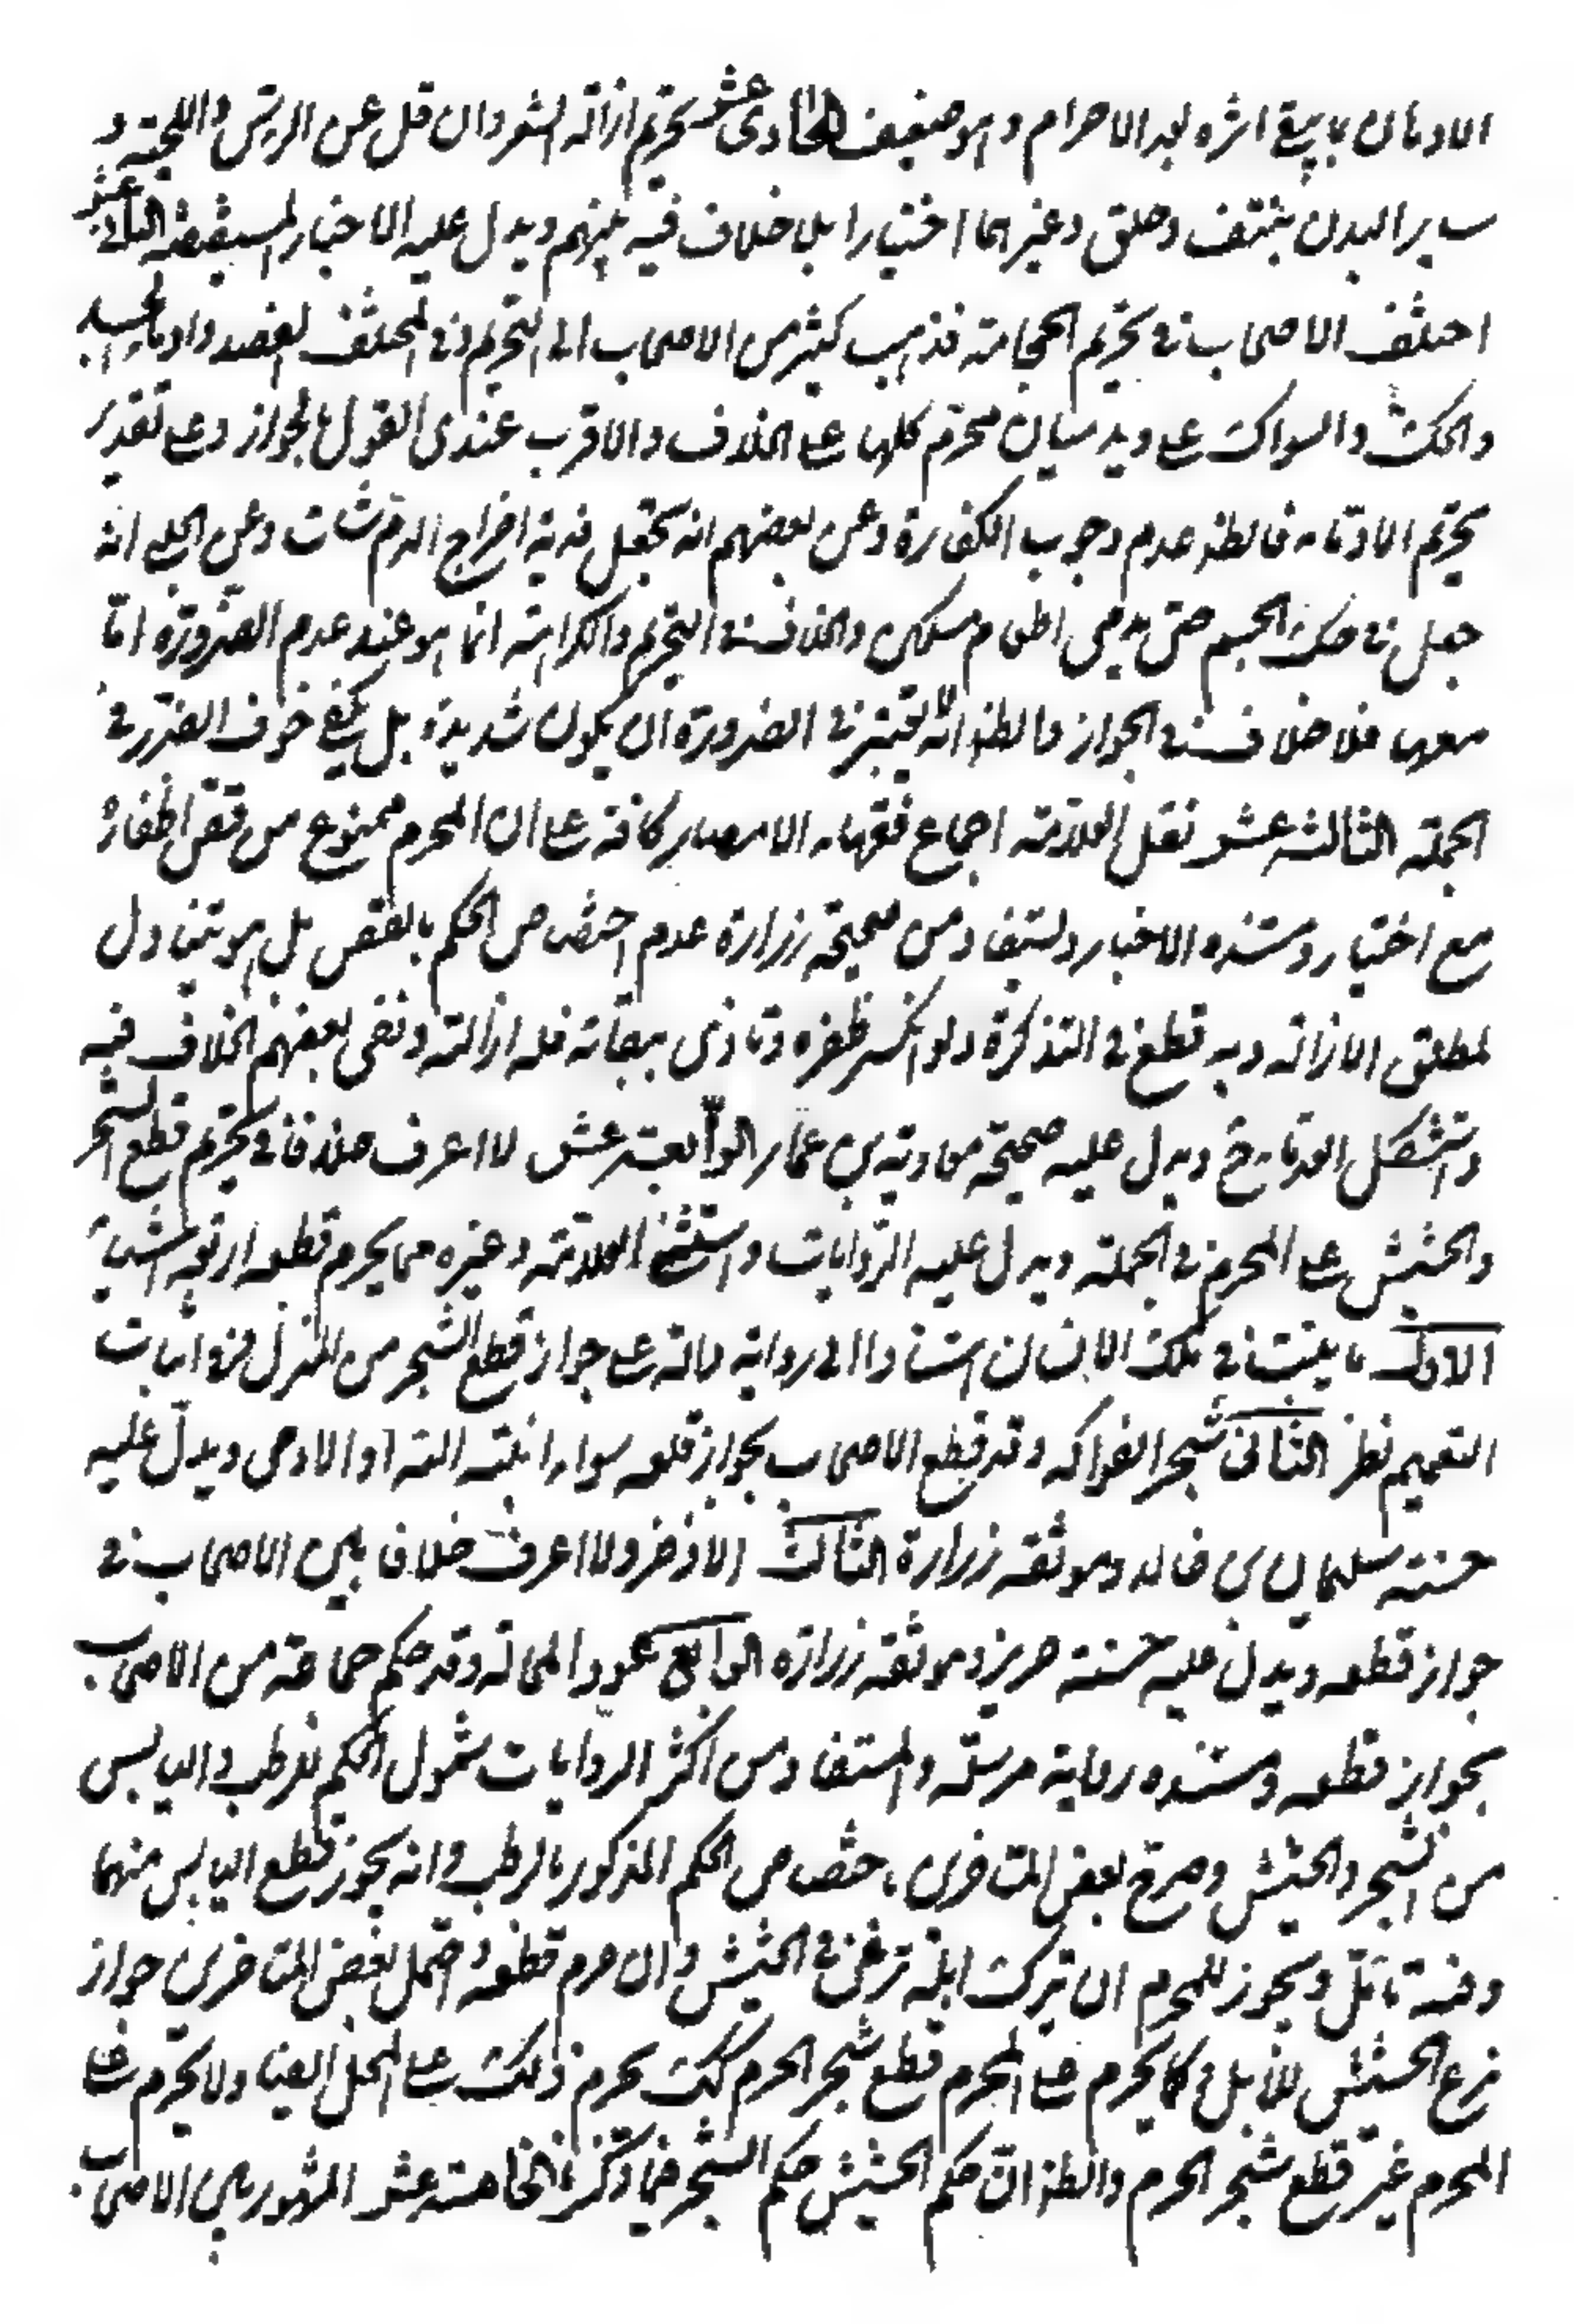 الادهان بما يبقى اثره بعد الاحرام وهو ضعيف الحادى عشر يحرم ازالة الشعر وان قل عن الراس واللحية و
ساير البدن بنتف وحلق وغيرهما اختيارا بلا خلاف فيه بينهم ويدل عليه الاخبار المستفيضة الثانى عشر
اختلف الاصحاب فى تحريم الحجامة فذهب كثير من الاصحاب الى التحريم وفى المختلف الفصد وادماء الجسد
والحك والسواك على وجه يدميان محرم كلها على الخلاف والاقرب عندى القول بالجواز وعلى تقدير
تحريم الادماء فالظ عدم وجوب الكفارة وعن بعضهم انه تجعل فدية اخراج الدم شاة وعن الحلبى انه
جعل فى حك الجسم حتى يدمى اطعام مسكين والخلاف فى التحريم والكراهة انما هو عند عدم الضرورة اما
معها فلا خلاف فى الجواز والظ انه لا يعتبر فى الضرورة ان يكون شديدة بل يكفى خوف الضرر فى
الجملة الثالثة عشر نقل العلامة اجماع فقهاء الامصار كافة على ان المحرم ممنوع من قص اظفاره
مع اختيار ومستنده الاخبار ويستفاد من صحيحة زرارة عدم اختصاص الحكم بالقص بل هو يتناول
لمطلق الازالة وبه قطع فى التذكرة ولو انكسر ظفره وتاذى ببقائه فله ازالته ونفى بعضهم الخلاف فيه
واستشكل العلامة فى ويدل عليه صحيحة معاوية بن عمار الرابعة عشر لا اعرف خلافا فى تحريم قطع الشجر
والحشيش على المحرم فى الجملة ويدل عليه الروايات واستثنى العلامة وغيره مما يحرم قطعه اربعة اشياء
الاول ما ينبت فى ملك الانسان استنادا الى رواية دالة على جواز قطع الشجر من المنزل وفى اثبات
التعميم نظر الثانى شجر الفواكه وقد قطع الاصحاب بجواز قلعه سواء انبته الله او الادمى ويدل عليه
حسنة سليمان بن خالد وموثقة زرارة الثالث الاذخر ولا اعرف خلافا بين الاصحاب فى
جواز قطعه ويدل عليه حسنة حريز وموثقة زرارة الرابع عودا المحالة وقد حكم جماعة من الاصحاب
بجواز قطعه ومستنده رواية مرسلة والمستفاد من اكثر الروايات شمول الحكم للرطب واليابس
من الشجر والحشيش وصرح بعض المتاخرين باختصاص الحكم المذكور بالرطب وانه يجوز قطع اليابس منهما
وفيه تامل ويجوز للمحرم ان يترك ابله ترعى فى الحشيش وان حرم قطعه واحتمل بعض المتاخرين جواز
نزع الحشيش للابل وكما يحرم على المحرم قطع شجر الحرم كك يحرم ذلك على المحل ايضا ولا يحرم على
المحرم غير قطع شجر الحرم والظ ان حكم الحشيش حكم الشجر فيما ذكر الخامسة عشر المشهور بين الاصحاب